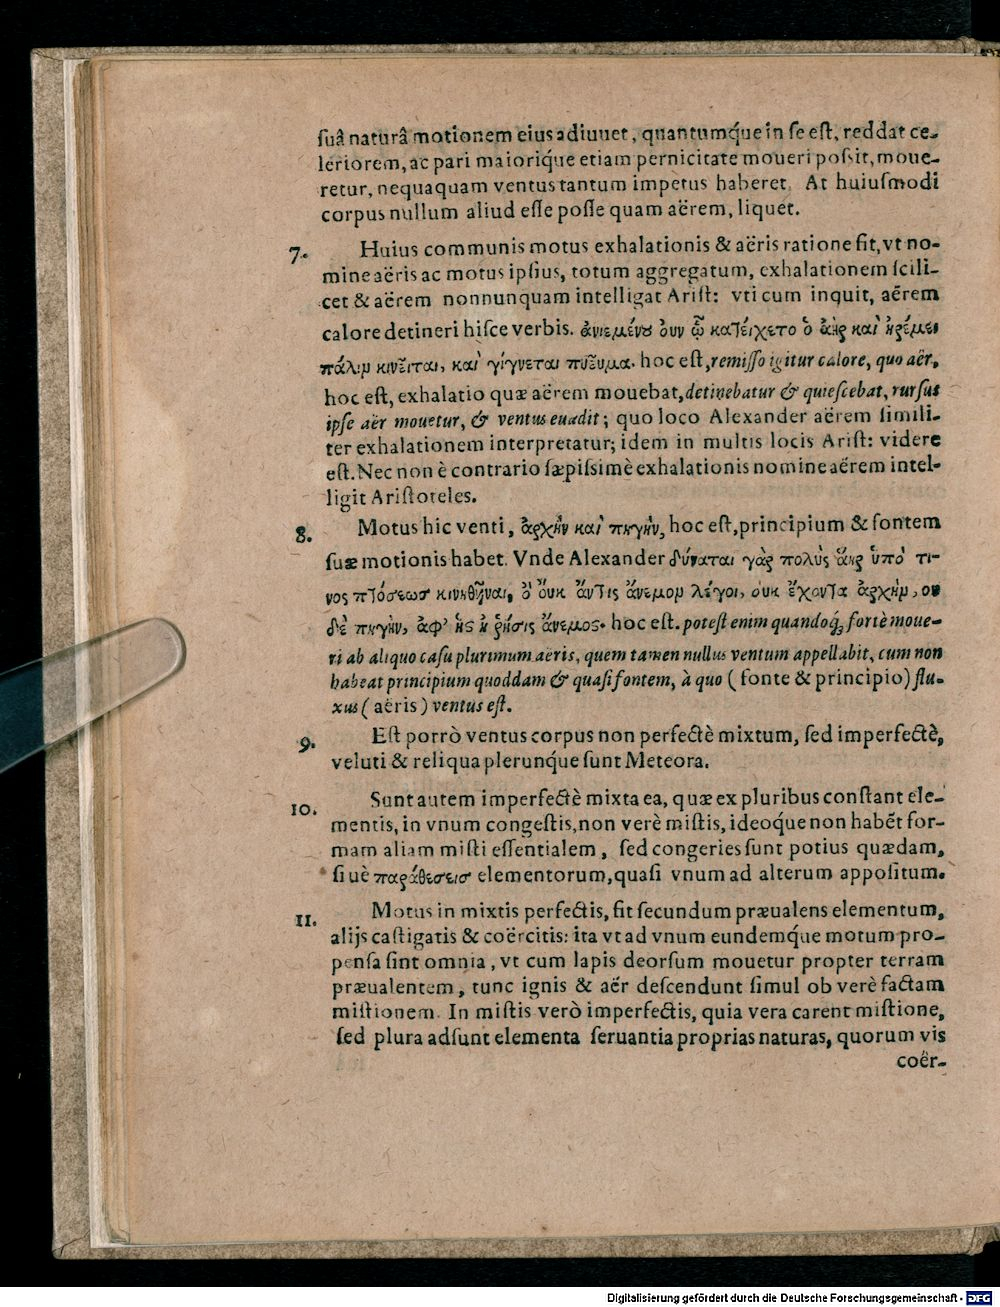 ſuâ naturâ motionem eius adiuuet, quantumq́ue in ſe eſt, reddat ce-
leriorem, ac pari maioriq́ue etiam pernicitate moueri poſsit, moue-
retur, nequaquam ventus tantum impetus haberet. At huiuſmodi
corpus nullum aliud eſſe poſſe quam aërem, liquet.
7. Huius communis motus exhalationis & aëris ratione fit, vt no-
mine aëris ac motus ipſius, totum aggregatum, exhalationem ſcili-
cet & aërem nonnunquam intelligat Ariſt: vti cum inquit, aërem
calore detineri hiſce verbis. ἀνιεμένου ουν ᾧ κατείχετο ὁ ἀὴρ καὶ ἠρέμει
πάλιν κινεῖται, καὶ γίγνεται πνεῦμα. hoc eſt, remiſſo igitur calore, quo aër,
hoc eſt, exhalatio quæ aërem mouebat, detinebatur & quieſcebat, rurſus
ipſe aër mouetur, & ventus euadit; quo loco Alexander aërem ſimili-
ter exhalationem interpretatur; idem in multis locis Ariſt: videre
eſt. Nec non è contrario ſæpiſsimè exhalationis nomine aërem intel-
ligit Ariſtoteles.
8. Motus hic venti, ἀρχὴν καὶ πηγὴν, hoc eſt, principium & fontem
ſuæ motionis habet. Vnde Alexander δύναται γὰρ πολὺς ἀὴρ ὑπό τι-
νος πτόσεωσ κινηθῆναι, ὃ οὖκ ἄντις ἄνεμον λέγοι, ουκ ἔχοντα ἀρχὴν, ου
δὲ πηγὴν, ἀφ' ἧς ἡ ῥῆσις ἄνεμος. hoc eſt. poteſt enim quandoq́; fortè moue-
ri ab aliquo caſu plurimum aëris, quem tamen nullus ventum appellabit, cum non
habeat principium quoddam & quaſi fontem, à quo (fonte & principio) flu-
xus (aëris) ventus eſt.
9. Eſt porrò ventus corpus non perfectè mixtum, ſed imperfectè,
veluti & reliqua plerunq́ue ſunt Meteora.
10. Sunt autem imperfectè mixta ea, quæ ex pluribus conſtant ele-
mentis, in vnum congeſtis, non verè miſtis, ideoque non habẽt for-
mam aliam miſti eſſentialem, ſed congeries ſunt potius quædam,
ſiuè παράθεσεισ elementorum, quaſi vnum ad alterum appoſitum.
11. Motus in mixtis perfectis, fit ſecundum præualens elementum,
alijs caſtigatis & coërcitis: ita vt ad vnum eundemq́ue motum pro-
penſa ſint omnia, vt cum lapis deorſum mouetur propter terram
præualentem, tunc ignis & aër deſcendunt ſimul ob verè factam
miſtionem. In miſtis verò imperfectis, quia vera carent miſtione,
ſed plura adſunt elementa ſeruantia proprias naturas, quorum vis
coër-
Digitalisierung gefördert durch die Deutsche Forschungsgemeinschaft - DFG